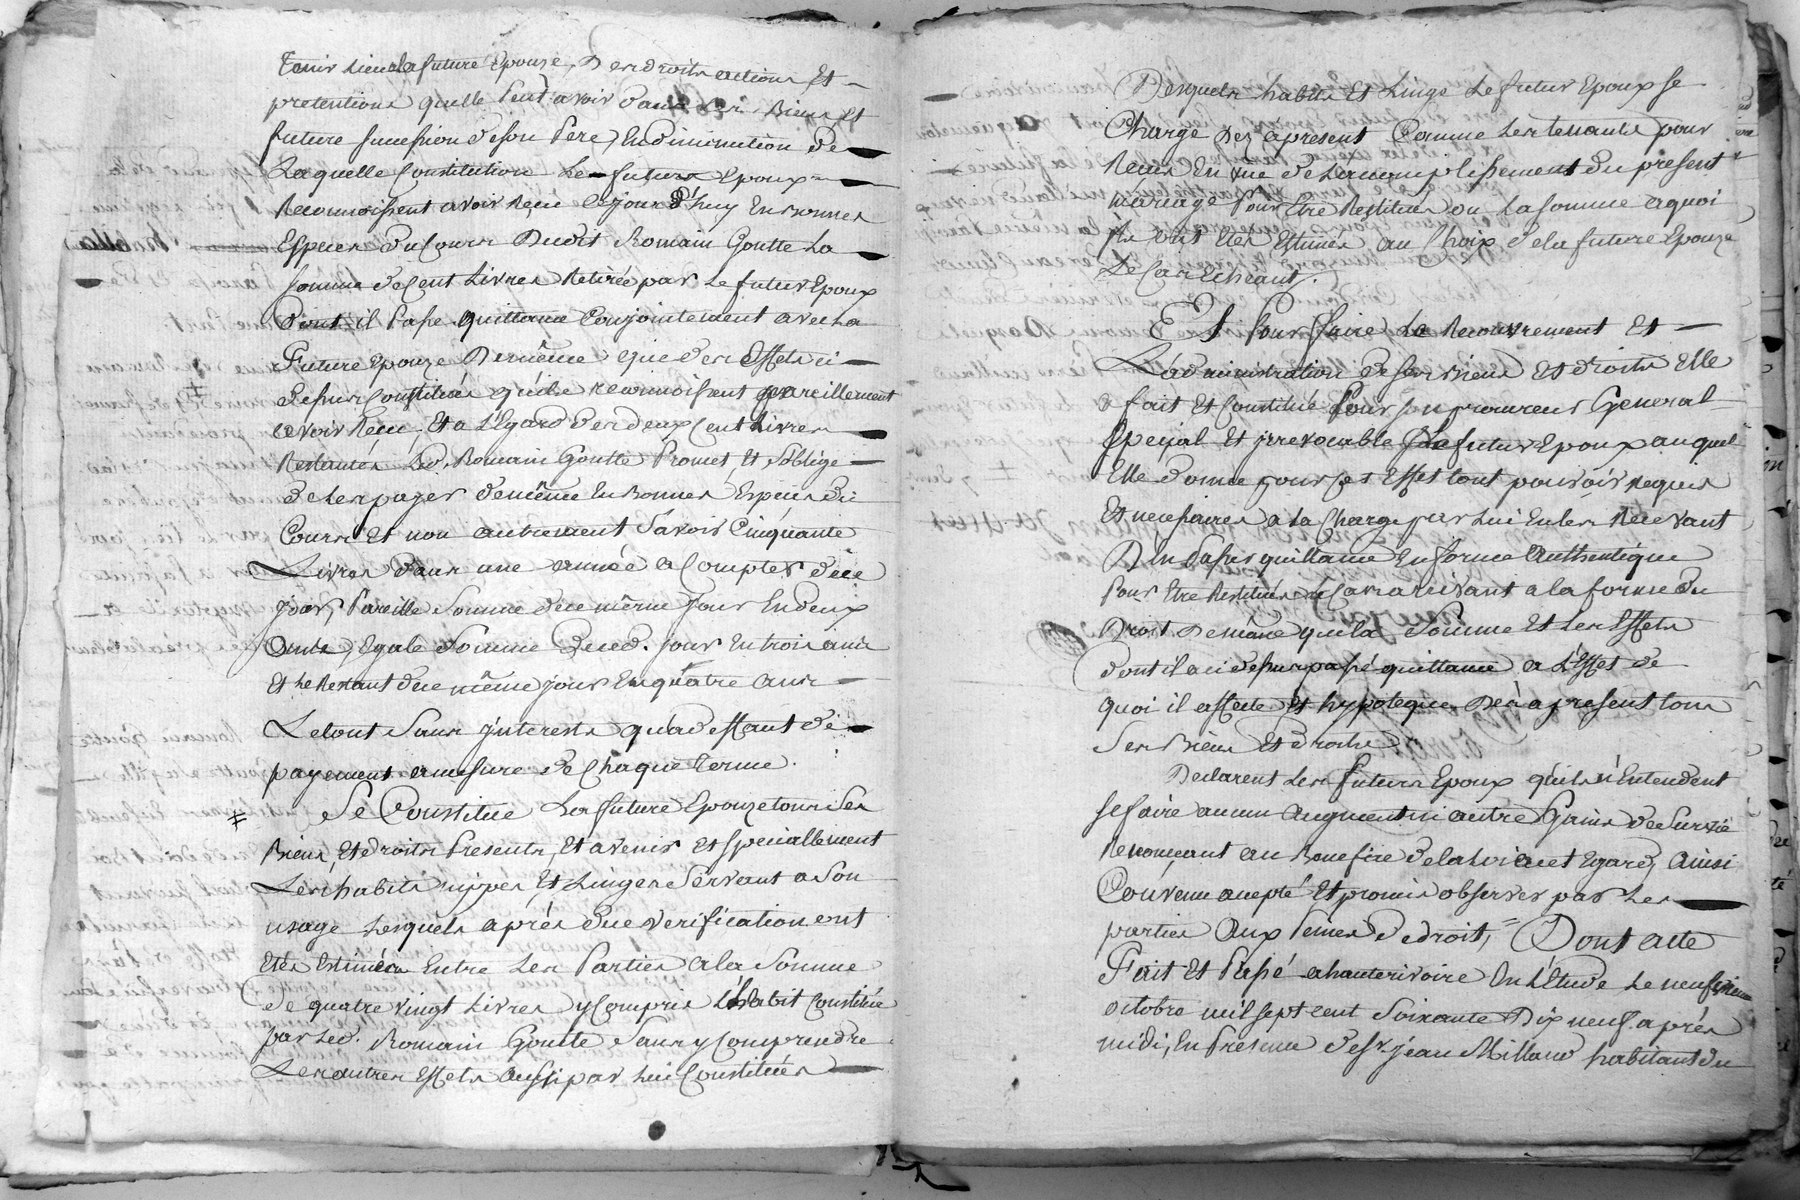 Tenir Lieu a la future Epouse, Des droits actions Et
pretentions quelle Peut avoir dans Les Biens Et
future succession de son Pere, En diminution de
Laquelle Constitution Les futurs Epoux
Reconnoissent avoir Reçu cejourd'huy En bonnes
Especes du Cours Dudit Romain Goutte La
somme de Cent Livres Retirée par Le futur Epoux
dont il Passe quittance Conjointement avec La
Future Epouze, De même que des Effets ci
dessus Constitués qu'ils reconnoissent pareillement
avoir Reçu, Et a L'Egard des deux Cent Livres
Restantes Led. Romain Goutte Promet Et s'oblige
de Les payer de même En Bonnes Especes du
Cours Et non autrement Savoir Cinquante
Livres dans une année a Compter de ce
jour, Pareille Somme de ce même Jour En deux
Ans, Egale Somme De ced. jour En trois ans
Et Le Restant de ce même jour En quatre ans
Le tout Sans jnterets qu'a deffaut de
payement a mesure de Chaque terme.
‡ Se Constitue La future Epouze tous Ses
Biens, Et droits Presents, Et avenir Et specialement
Les habits nippes Et Linges Servant a Son
usage Lesquels après due verification ont
Etés Estimés Entre Les Parties a la Somme
de quatre vingt Livres y Compris L'habit Constitué
par Led. Romain Goutte Sans y Comprendre
Les autres Effets aussi par Lui Constitués
Desquels habits Et Linge Le futur Epoux se
Charge Des apresent Comme Les tenants pour
Reçus En vue de L'accomplissement du present
mariage Pour Etre Restitués ou La somme a quoi
ils ont Etés Estimés au Choix de la future Epouze
Le Cas Echeant.
Et Pour faire Le Recouvrement Et
L'administration de ses Biens Et droits Elle
a fait Et Constitué Pour son procureur General
Special Et jrrevocable Le futur Epoux auquel
Elle donne pour cet Effet tout pouvoir Requis
Et necessaires a La Charge par Lui En Les Recevant
D'En Passer quittance En forme Authentique
Pour Etre Restitués Le Cas arrivant a la forme du
Droit De même que la Somme Et Les Effets
dont il a ci dessus passé quittance a L'Effet de
quoi il affecte Et hypoteque Des a present tous
Ses Biens Et droits.
Declarent Les futurs Epoux qu'ils n'Entendent
se faire aucun Augment ni autre Gains de Survie
Renonçant au Benefice de la Loi a cet Egard, Ainsi
Convenu accepté Et promis observer par Les
parties Aux Peines De droit, = Dont acte
Fait Et Passé a hauterivoire En L'Etude Le neufieme
octobre mil sept cent Soixante Dix neuf après
midi, En Presence de Sr. jean Milland habitant du